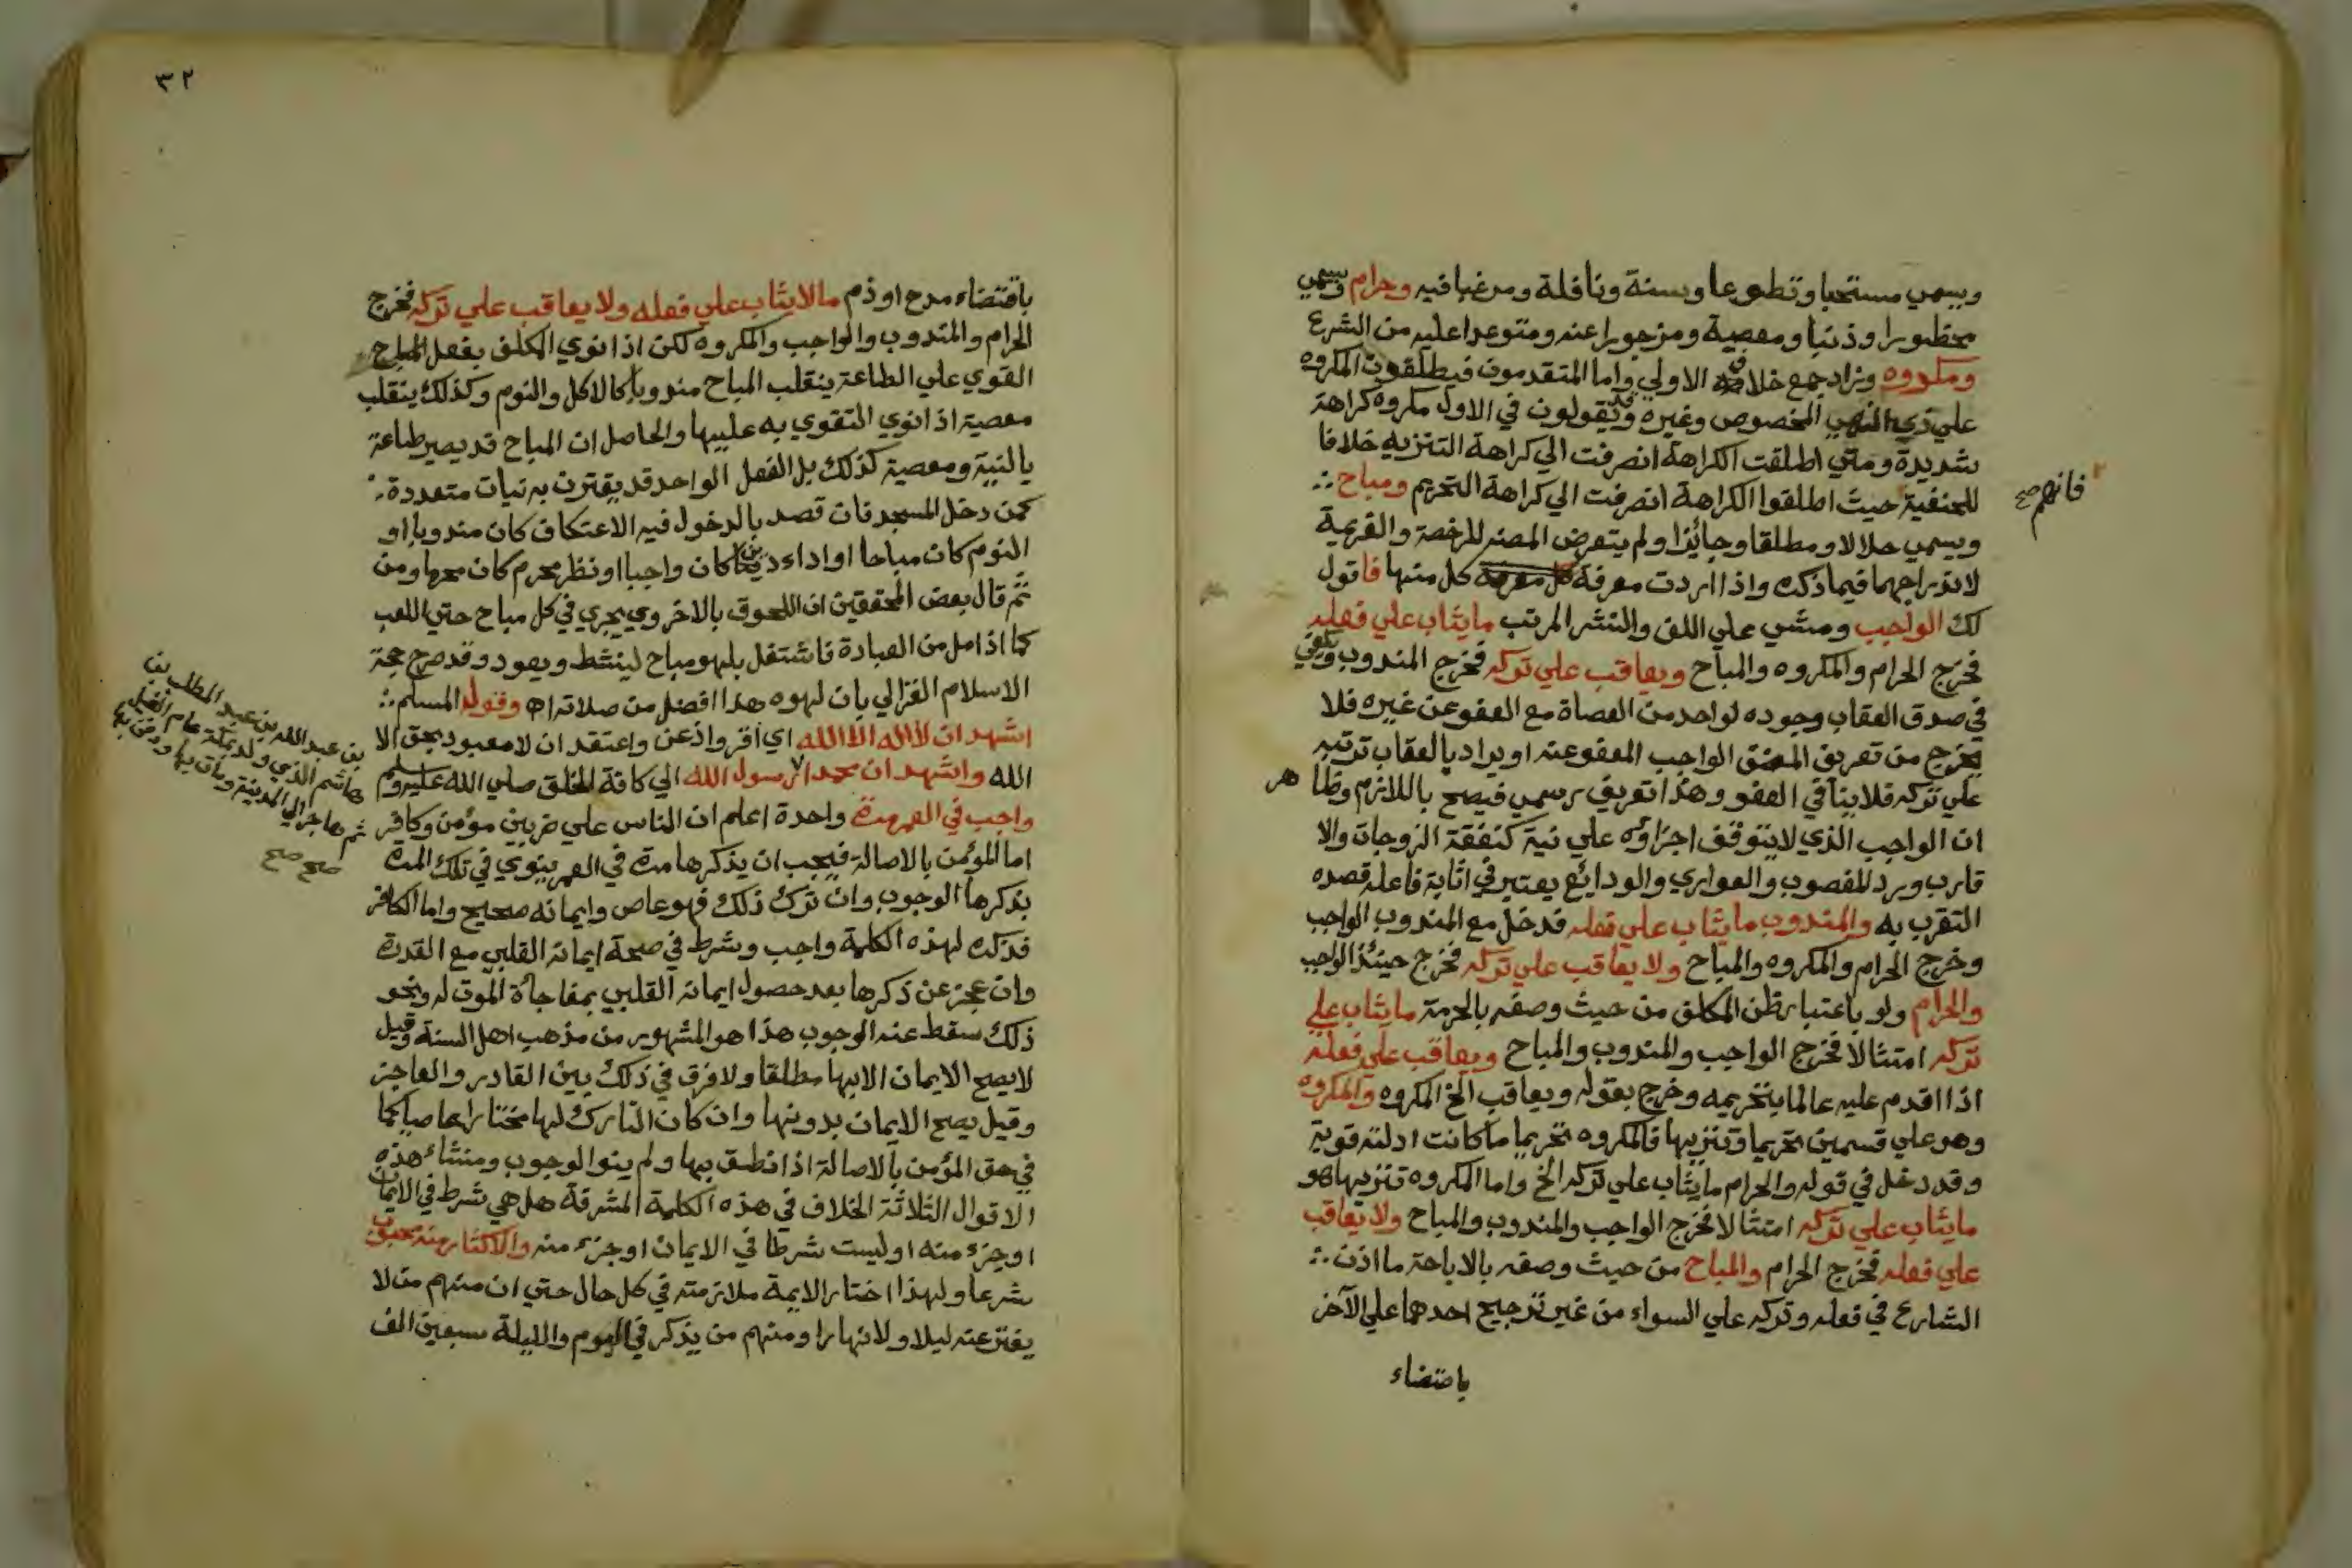 ويسمي مستحبا وتطوعا وسنة ونافلة ومرغبا فيه وحرام ويسمي
محظورا وذنبا ومعصية ومزجورا عنه ومتوعدا عليه من الشرع
ومكروه وزاد جمع خلاف الاولي واما المتقدمون فيطلقون المكروه
علي ذي النهي المخصوص وغيره وقد يقولون في الاول مكروه كراهة
شديدة ومتي اطلقت الكراهة انصرفت الي كراهة التنزيه خلافا
للحنفية حيث اطلقوا الكراهة انصرفت الي كراهة التحريم ومباح
فانهم صح
ويسمي حلالا ومطلقا وجائزا ولم يتعرض المصنر للرخصة والعزيمة
لاندراجهما فيما ذكره واذا اردت معرفة كل منها فاقول
لك الواجب ومشي علي اللف والنشر المرتب ما يثاب علي فعله
فخرج الحرام والمكروه والمباح ويعاقب علي تركه فخرج المندوب ويكفي
في صدق العقاب وجوده لواحد من العصاة مع العفو عن غيره فلا
يخرج من تعريق المصنف الواجب المعفو عنه او يراد بالعقاب ترتبه
علي تركه فلا ينافي العفو وهذا تعريف رسمي فيصح باللازم وظا هر
ان الواجب الذي لا يتوقف اجزاؤه علي نية كنفقة الزوجات والا
قارب ورد المغصوب والعواري والودائع يعتبر في اثابة فاعله قصده
التقرب به والمندوب ما يثاب علي فعله فدخل مع المندوب الواجب
وخرج الحرام والمكروه والمباح ولا يعاقب علي تركه فخرج حينئذ الواجب
والحرام ولو باعتبار ظن المكلف من حيث وصفه بالحرمة ما يثاب علي
تركه امتثالا فخرج الواجب والمندوب والمباح ويعاقب علي فعله
اذا اقدم عليه عالما بتحريمه وخرج بقوله ويعاقب الخ المكروه والمكروه
وهو علي قسمين تحريما وتنزيها فالمكروه تحريما ما كانت ادلته قوية
وقد دخل في قوله والحرام ما يثاب علي تركه الخ واما المكروه تنزيها فهو
ما يثاب علي تركه امتثالا فخرج الواجب والمندوب والمباح ولا يعاقب
علي فعله فخرج الحرام والمباح من حيث وصفه بالاباحة ما اذن
الشارع في فعله وتركه علي السواء من غير ترجيح احدهما علي الآخر
باقتضاء
٣٢
باقتضاء مدح او ذم ما لا يثاب علي فعله ولا يعاقب علي تركه فخرج
الحرام والمندوب والواجب والمكروه لكن اذا نوي المكلف بفعل المباح
القوي علي الطاعة ينقلب المباح مندوبا كالاكل والنوم وكذلك ينقلب
معصية اذا نوي التقوي به عليها والحاصل ان المباح قد يصير طاعة
بالنية ومعصية كذلك بل الفعل الواحد قد يقترن به نيات متعددة
كمن دخل المسجد فان قصد بالدخول فيه الاعتكاف كان مندوبا او
النوم كان مباحا او اداء دين كان واجبا او نظر محرم كان محرما ومن
ثم قال بعض المحققين ان اللحوق بالاخروي يجري في كل مباح حتي اللعب
كما اذا مل من العبادة فاشتغل بلهو مباح لينشط ويعود وقد صرح حجة
الاسلام الغزالي بان لهوه هذا افضل من صلاته اه وقول المسلم
اشهد ان لا اله الا الله اي اقر واذعن واعتقد ان لا معبود بحق الا
الله واشهد ان محمدا رسول الله الي كافة الخلق صلي الله عليه وسلم
بن عبد الله بن عبد المطلب بن
هاشم الذي ولد بمكة عام الفيل
ثم هاجر الي المدينة ومات بها ودفن بها
صح صح
واجب في العمر مرة واحدة اعلم ان الناس علي ضربين مؤمن وكافر
اما المؤمن بالاصالة فيجب ان يذكرها مرة في العمر ينوي في تلك المرة
بذكرها الوجوب وان ترك ذلك فهو عاص وايمانه صحيح واما الكافر
فذكره لهذه الكلمة واجب وشرط في صحة ايمانه القلبي مع القدرة
وان عجز عن ذكرها بعد حصول ايمانه القلبي بمفاجأة الموت له ونحو
ذلك سقط عنه الوجوب هذا هو المشهور من مذهب اهل السنة وقيل
لا يصح الايمان الا بها مطلقا ولا فرق في ذلك بين القادر والعاجز
وقيل يصح الايمان بدونها وان كان التارك لها مختارا عاصيا كما
في حق المؤمن بالاصالة اذا نطق بها ولم ينو الوجوب ومنشاء هذه
الاقوال الثلاثة الخلاف في هذه الكلمة المشرفة هل هي شرط في الايمان
او جزء منه او ليست شرطا في الايمان او جزء منه والاكثار منه محبوب
شرعا ولهذا اختار الايمة ملازمته في كل حال حتي ان منهم من لا
يفتر عنه ليلا ولا نهارا ومنهم من يذكر في اليوم والليلة سبعين الف